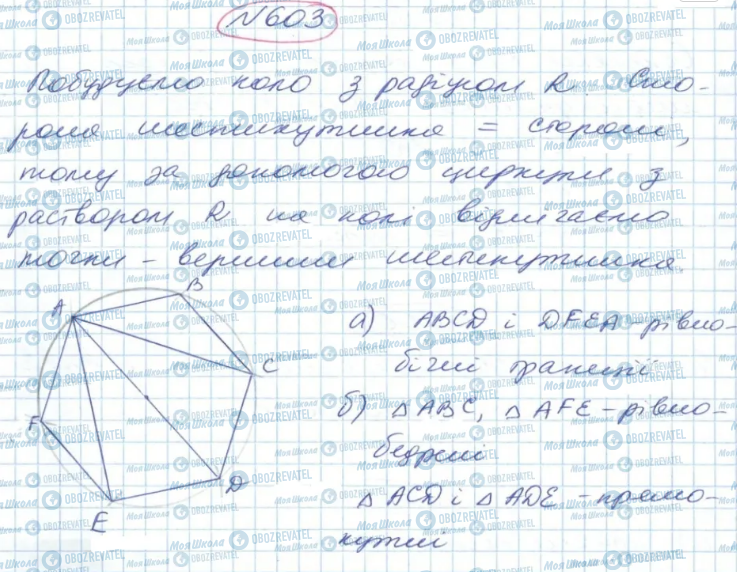 №603
Побудуємо коло з радіусом R. Сто-
рона шестикутника = стороні,
тому за допомогою циркуля з
раствором R на колі відмічаємо
точки – вершини шестикутника.
A
B
C
D
E
F
а) ABCD і DFEA – рівно-
бічні трапеції
б) △ABC, △AFE – рівно-
бедрені
△ACD і △ADE – прямо-
кутні
Моя Школа OBOZREVATEL